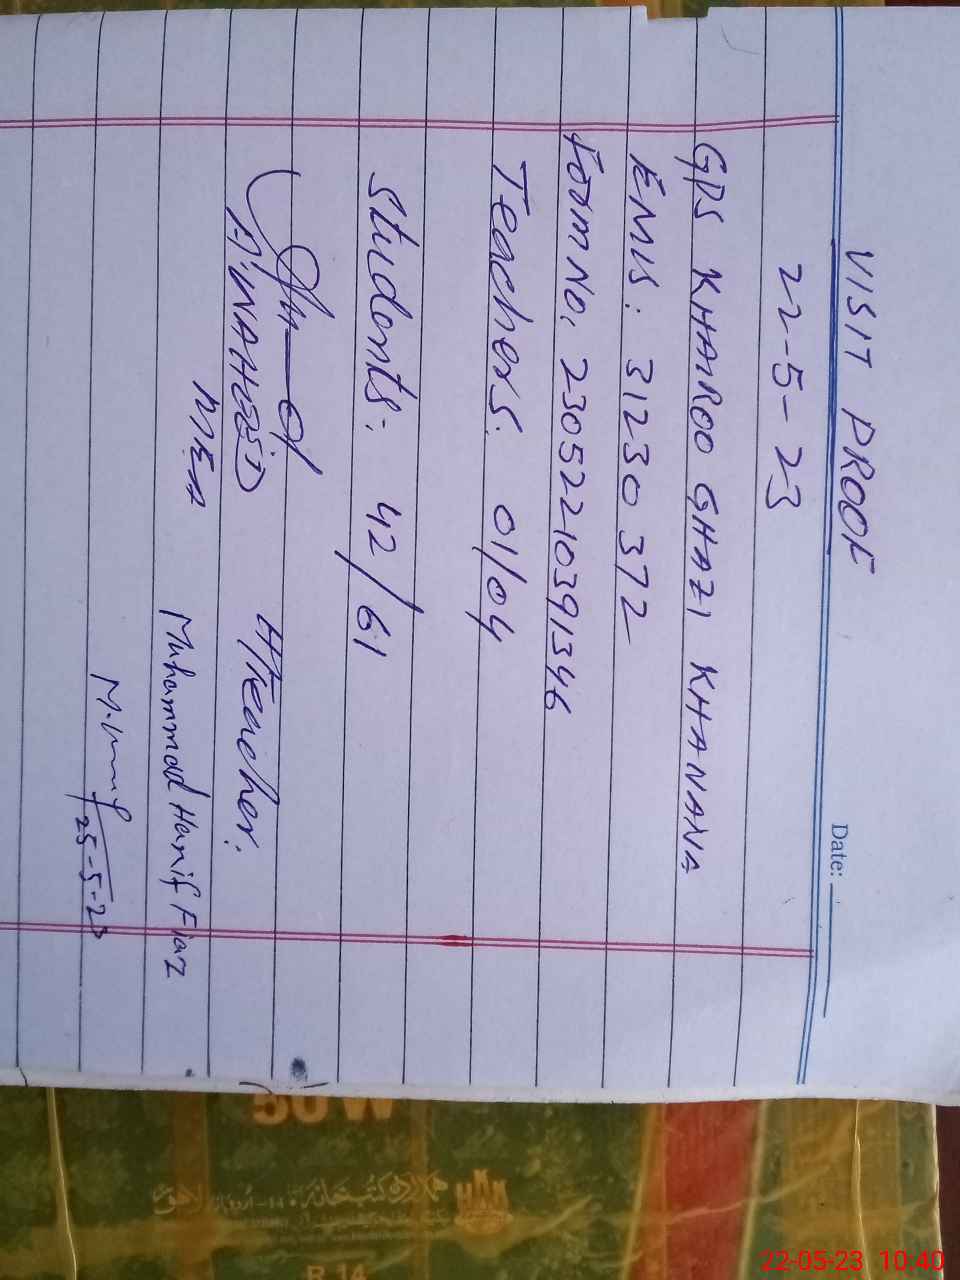 VISIT PROOF
Date:
22-5-23
GPS KHAIROO GHAZI KHANANA
EMIS: 31230372
Form No. 23052210391346
Teachers: 01/04
Students: 42/61
A.WAHEED
MEA
H/Teacher.
Muhammad Hanif Fiaz
25-5-23
50 W
R-14
22-05-23 10:40